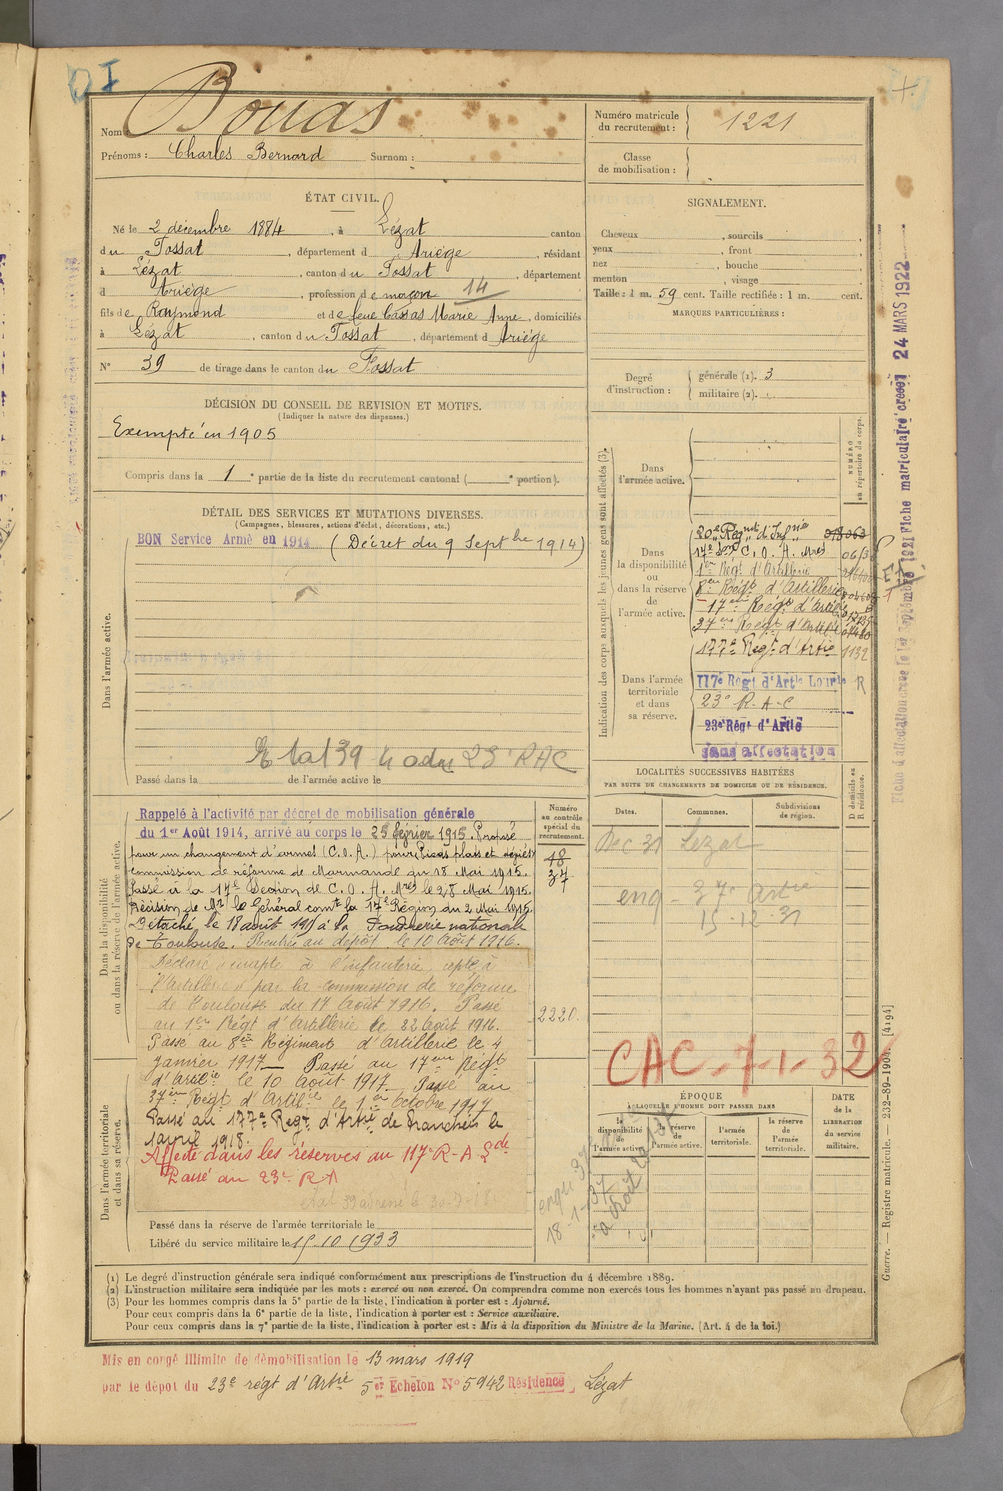 Nom Bouas
Prénoms : Charles Bernard Surnom :
Numéro matricule du recrutement : 1221
Classe de mobilisation :
ÉTAT CIVIL.
Né le 2 décembre 1884, à Lézat canton
du Fossat, département d Ariège, résidant
à Lézat, canton du Fossat, département
d Ariège, profession de maçon 14
fils de Raymond et de feue Cassas Marie Anne, domiciliés
à Lézat, canton du Fossat, département d Ariège
N° 39 de tirage dans le canton du Fossat
SIGNALEMENT.
Cheveux, sourcils
yeux, front
nez, bouche
menton, visage
Taille : 1 m. 59 cent. Taille rectifiée : 1 m. cent.
MARQUES PARTICULIÈRES :
Degré d'instruction : générale (1). 3
militaire (2).
DÉCISION DU CONSEIL DE REVISION ET MOTIFS.
(Indiquer la nature des dispenses.)
Exempté en 1905
Compris dans la 1e partie de la liste du recrutement cantonal (e portion).
DÉTAIL DES SERVICES ET MUTATIONS DIVERSES.
(Campagnes, blessures, actions d'éclat, décorations, etc.)
Dans l'armée active.
BON Service Armé en 1914 (Décret du 9 Septbre 1914)
23e RAC
Passé dans la de l'armée active le
Indication des corps auxquels les jeunes gens sont affectés (3).
NUMÉRO au répertoire du corps.
Dans l'armée active.
Dans la disponibilité ou dans la réserve de l'armée active.
20e Régnt d'Infrie
17e Son C. O. A. Mres
1er Régt d'Artillerie
8em Régt d'Artillerie
17em Régt d'Artie
37em Régt d'Artie
177e Régt d'Artie 1132
Dans l'armée territoriale et dans sa réserve.
117e Régt d'Artie Lourde R
23e R.A.C
23e Régt d'Artie
sans affectation
LOCALITÉS SUCCESSIVES HABITÉES
PAR SUITE DE CHANGEMENTS DE DOMICILE OU DE RÉSIDENCE.
Dates. Communes. Subdivisions de région. D domicile ou R résidence.
Dec 31 Lézat
37e Artie
15.12.31
CAC - 7-1-32
Dans la disponibilité ou dans la réserve de l'armée active.
Numéro au contrôle spécial du recrutement.
Rappelé à l'activité par décret de mobilisation générale
du 1er Août 1914, arrivé au corps le 25 février 1915. Proposé
pour un changement d'armes (C.O.A.) pour Pieds plats et
commission de réforme de Marmande du 18 Mai 1915.
Passé à la 17e Section de C. O. A. Mres le 28 Mai 1915.
Décision de Mr le Général comt la 17e Région du 2 Mai 1915.
Détaché le 18 août 1915 à la Fonderie nationale
de Toulouse. Rentré au dépôt le 10 Août 1916.
48
37
2220.
Déclaré "inapte à l'infanterie, apte à
l'artillerie" par la commission de réforme
de Toulouse du 17 Août 1916. Passé
au 1er Régt d'Artillerie le 22 Août 1916.
Passé au 8em Régiment d'Artillerie le 4
Janvier 1917 Passé au 17em Régt
d'Artillie le 10 Août 1917. Passé au
37em Régt d'Artillie le 1er Octobre 1917
Passé au 177e Régt d'Artie de Tranchées le
1 avril 1918.
Affecté dans les réserves au 117e R-A-Lde
Passé au 23e RA
Dans l'armée territoriale et dans sa réserve.
Passé dans la réserve de l'armée territoriale le
Libéré du service militaire le 15-10 1933
ÉPOQUE
À LAQUELLE L'HOMME DOIT PASSER DANS
la disponibilité de l'armée active. la réserve de l'armée active. l'armée territoriale. la réserve de l'armée territoriale.
DATE de la LIBÉRATION du service militaire.
(1) Le degré d'instruction générale sera indiqué conformément aux prescriptions de l'instruction du 4 décembre 1889.
(2) L'instruction militaire sera indiquée par les mots : exercé ou non exercé. On comprendra comme non exercés tous les hommes n'ayant pas passé au drapeau.
(3) Pour les hommes compris dans la 5e partie de la liste, l'indication à porter est : Ajourné.
Pour ceux compris dans la 6e partie de la liste, l'indication à porter est : Service auxiliaire.
Pour ceux compris dans la 7e partie de la liste, l'indication à porter est : Mis à la disposition du Ministre de la Marine. (Art. 4 de la loi.)
Mis en congé illimité de démobilisation le 13 mars 1919
par le dépôt du 23e régt d'Artie 5er Echelon No 5942 Résidence, Lézat
Guerre. — Registre matricule. — 232-89-1904. [4194]
Fiche matriculaire créée 24 MARS 1922